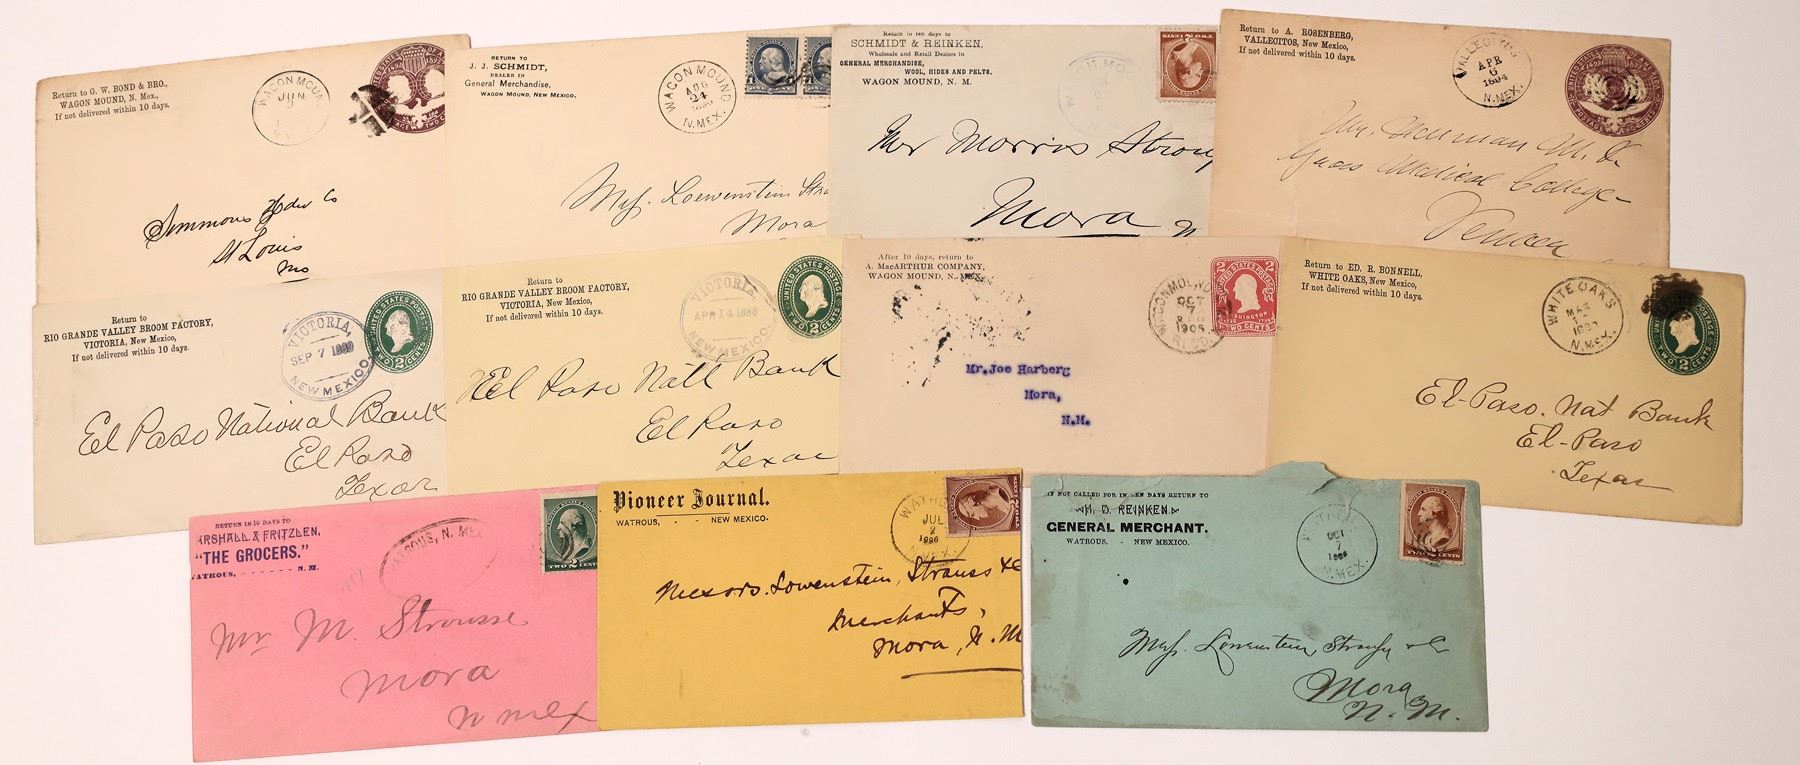 Return to G. W. BOND & BRO.,
WAGON MOUND, N. Mex.,
If not delivered within 10 days.
WAGON MOUND
JUN
Simmons Hdw Co
St Louis
Mo
RETURN TO
J. J. SCHMIDT,
DEALER IN
General Merchandise,
WAGON MOUND, NEW MEXICO.
WAGON MOUND,
AUG
24
N. MEX.
Mess. Loewenstein Stra
Mora
Return in ten days to
SCHMIDT & REINKEN,
Wholesale and Retail Dealers in
GENERAL MERCHANDISE,
WOOL, HIDES AND PELTS.
WAGON MOUND, N. M.
Mr Morris Strou
Mora
Return to A. ROSENBERG,
VALLECITOS, New Mexico,
If not delivered within 10 days.
VALLECITOS
APR
6
1894
N. MEX.
Medical College
Return to
RIO GRANDE VALLEY BROOM FACTORY,
VICTORIA, New Mexico,
If not delivered within 10 days.
VICTORIA,
SEP 7
NEW MEXICO.
UNITED STATES POSTAGE
TWO 2 CENTS
El Paso National Bank
El Paso
Texas
Return to
RIO GRANDE VALLEY BROOM FACTORY,
VICTORIA, New Mexico,
If not delivered within 10 days.
VICTORIA,
APR 14 1888
NEW MEXICO.
UNITED STATES POSTAGE
TWO 2 CENTS
El Paso Natl Bank
El Paso
Texas
After 10 days, return to
A. MacARTHUR COMPANY,
WAGON MOUND, N. MEX.
WAGONMOUND
OCT
7
UNITED STATES POSTAGE
WASHINGTON
TWO CENTS
Mr. Joe Harberg
Mora,
N.M.
Return to ED. R. BONNELL,
WHITE OAKS, New Mexico,
If not delivered within 10 days.
WHITE OAKS
N. MEX.
TWO 2 CENTS
El-Paso. Nat Bank
El-Paso
Texas
RETURN IN 10 DAYS TO
ARSHALL & FRITZLEN,
"THE GROCERS."
WATROUS, - - - - - - N. M.
WATROUS, N. MEX
TWO 2 CENTS
Mr M. Strousse
Mora
N Mex
Pioneer Journal.
WATROUS, - - NEW MEXICO.
WATRO
JUL
2
1886
N. MEX.
Messrs. Lowenstein, Strauss & C
Merchants,
Mora, N. M
IF NOT CALLED FOR IN TEN DAYS RETURN TO
H. D. REINKEN
GENERAL MERCHANT.
WATROUS, - NEW MEXICO.
OCT
7
N. MEX.
TWO 2 CENTS
Mess. Lowenstein, Strauss & C
Mora
N. M.